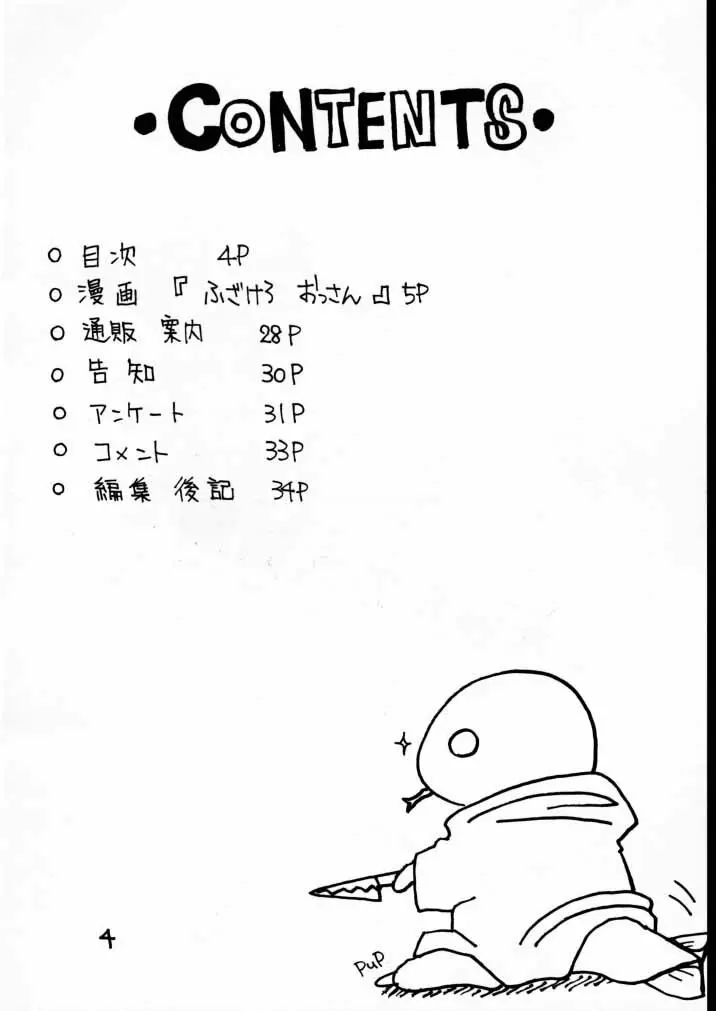 •CONTENTS•
○ 目次 4P
○ 漫画 『ふざけろ おっさん』 5P
○ 通販 案内 28P
○ 告知 30P
○ アンケート 31P
○ コメント 33P
○ 編集 後記 34P
PuP
4